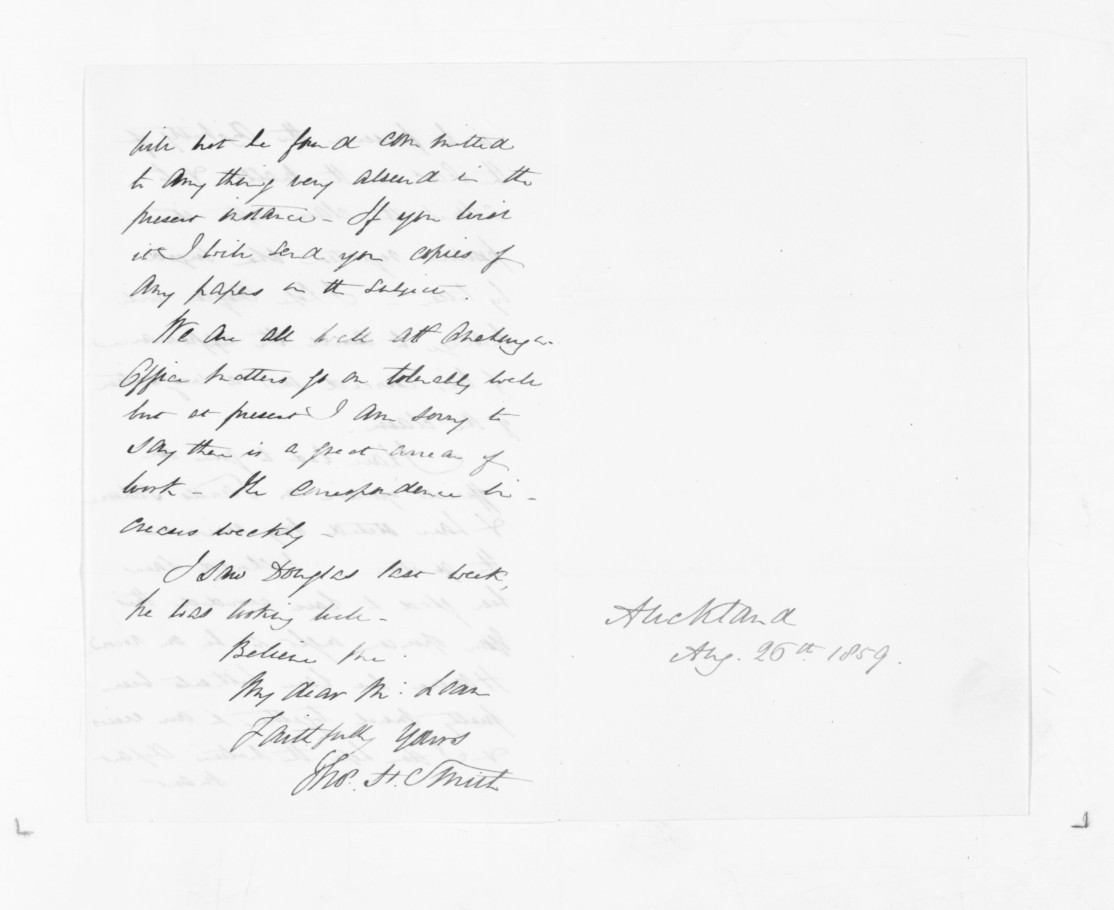 will not be found committed
to anything very absurd in the
present instance - If you wish
it I will send you copies of
any papers on the subject.
We are all well at Onehunga -
Office matters go on tolerably well
but at present I am sorry to
say there is a great arrear of
work - the correspondence in -
creases weekly -
I saw Douglas last week,
he was looking well -
Believe me
My dear McLean
Faithfully Yours
Thos. H. Smith
Auckland
Aug. 26th 1859.